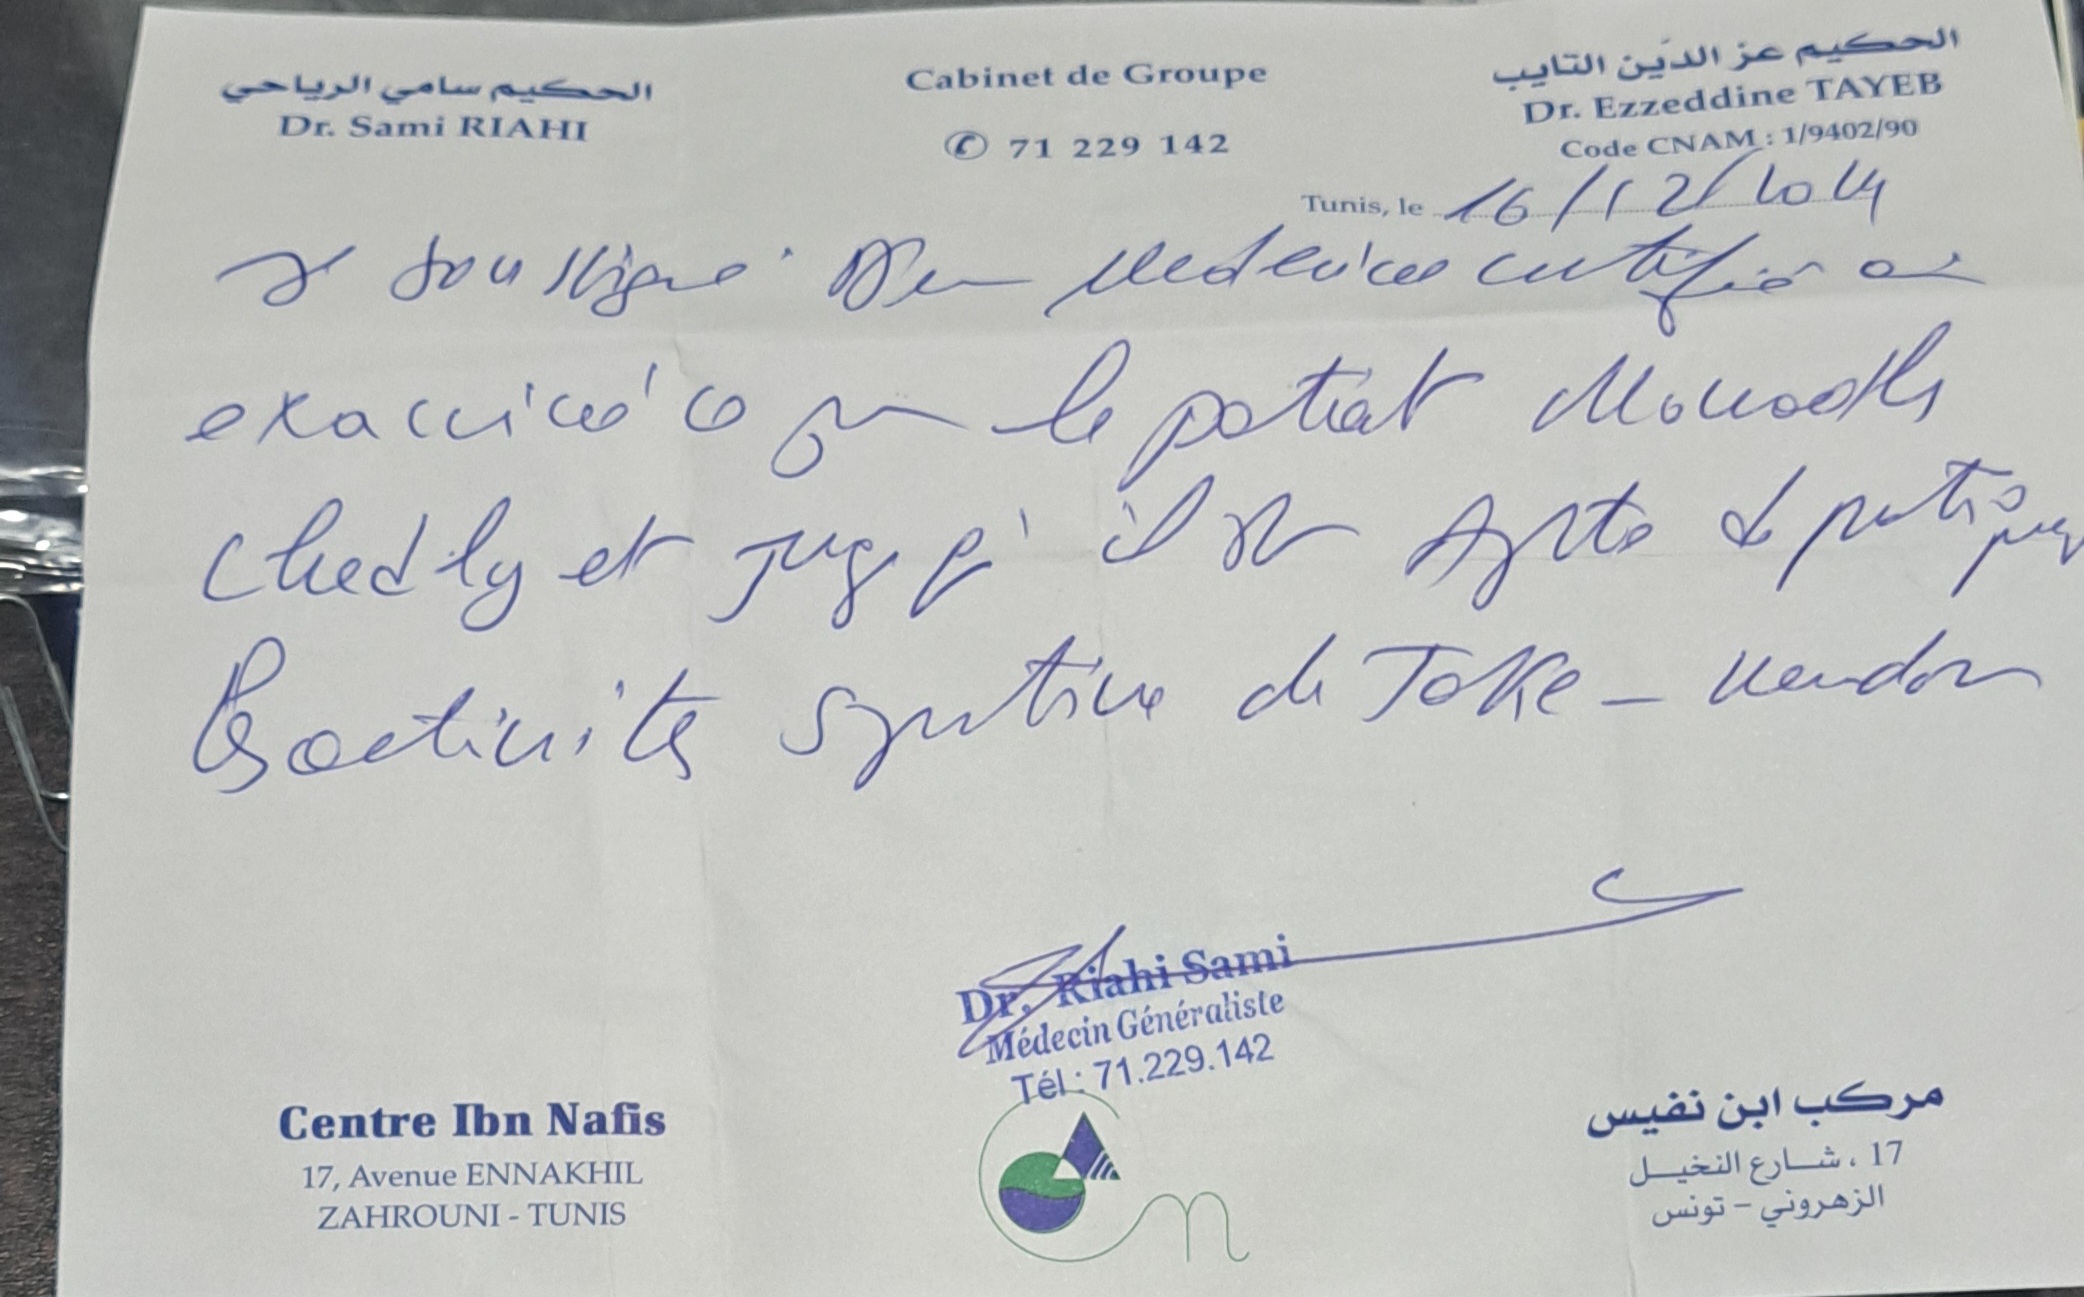 الحكيم سامي الرياحي
Dr. Sami RIAHI
Cabinet de Groupe
✆ 71 229 142
الحكيم عز الدّين التايب
Dr. Ezzeddine TAYEB
Code CNAM : 1/9402/90
Tunis, le 16/12/2024
Je soussigné Dr en médecine certifie avoir
examiné ce jour le patient
Chedly et juge qu'il est Apte de pratiquer
les activités sportive de Take-
Dr. Riahi Sami
Médecin Généraliste
Tél : 71.229.142
Centre Ibn Nafis
17, Avenue ENNAKHIL
ZAHROUNI - TUNIS
مركب ابن نفيس
17 ، شارع النخيل
الزهروني - تونس